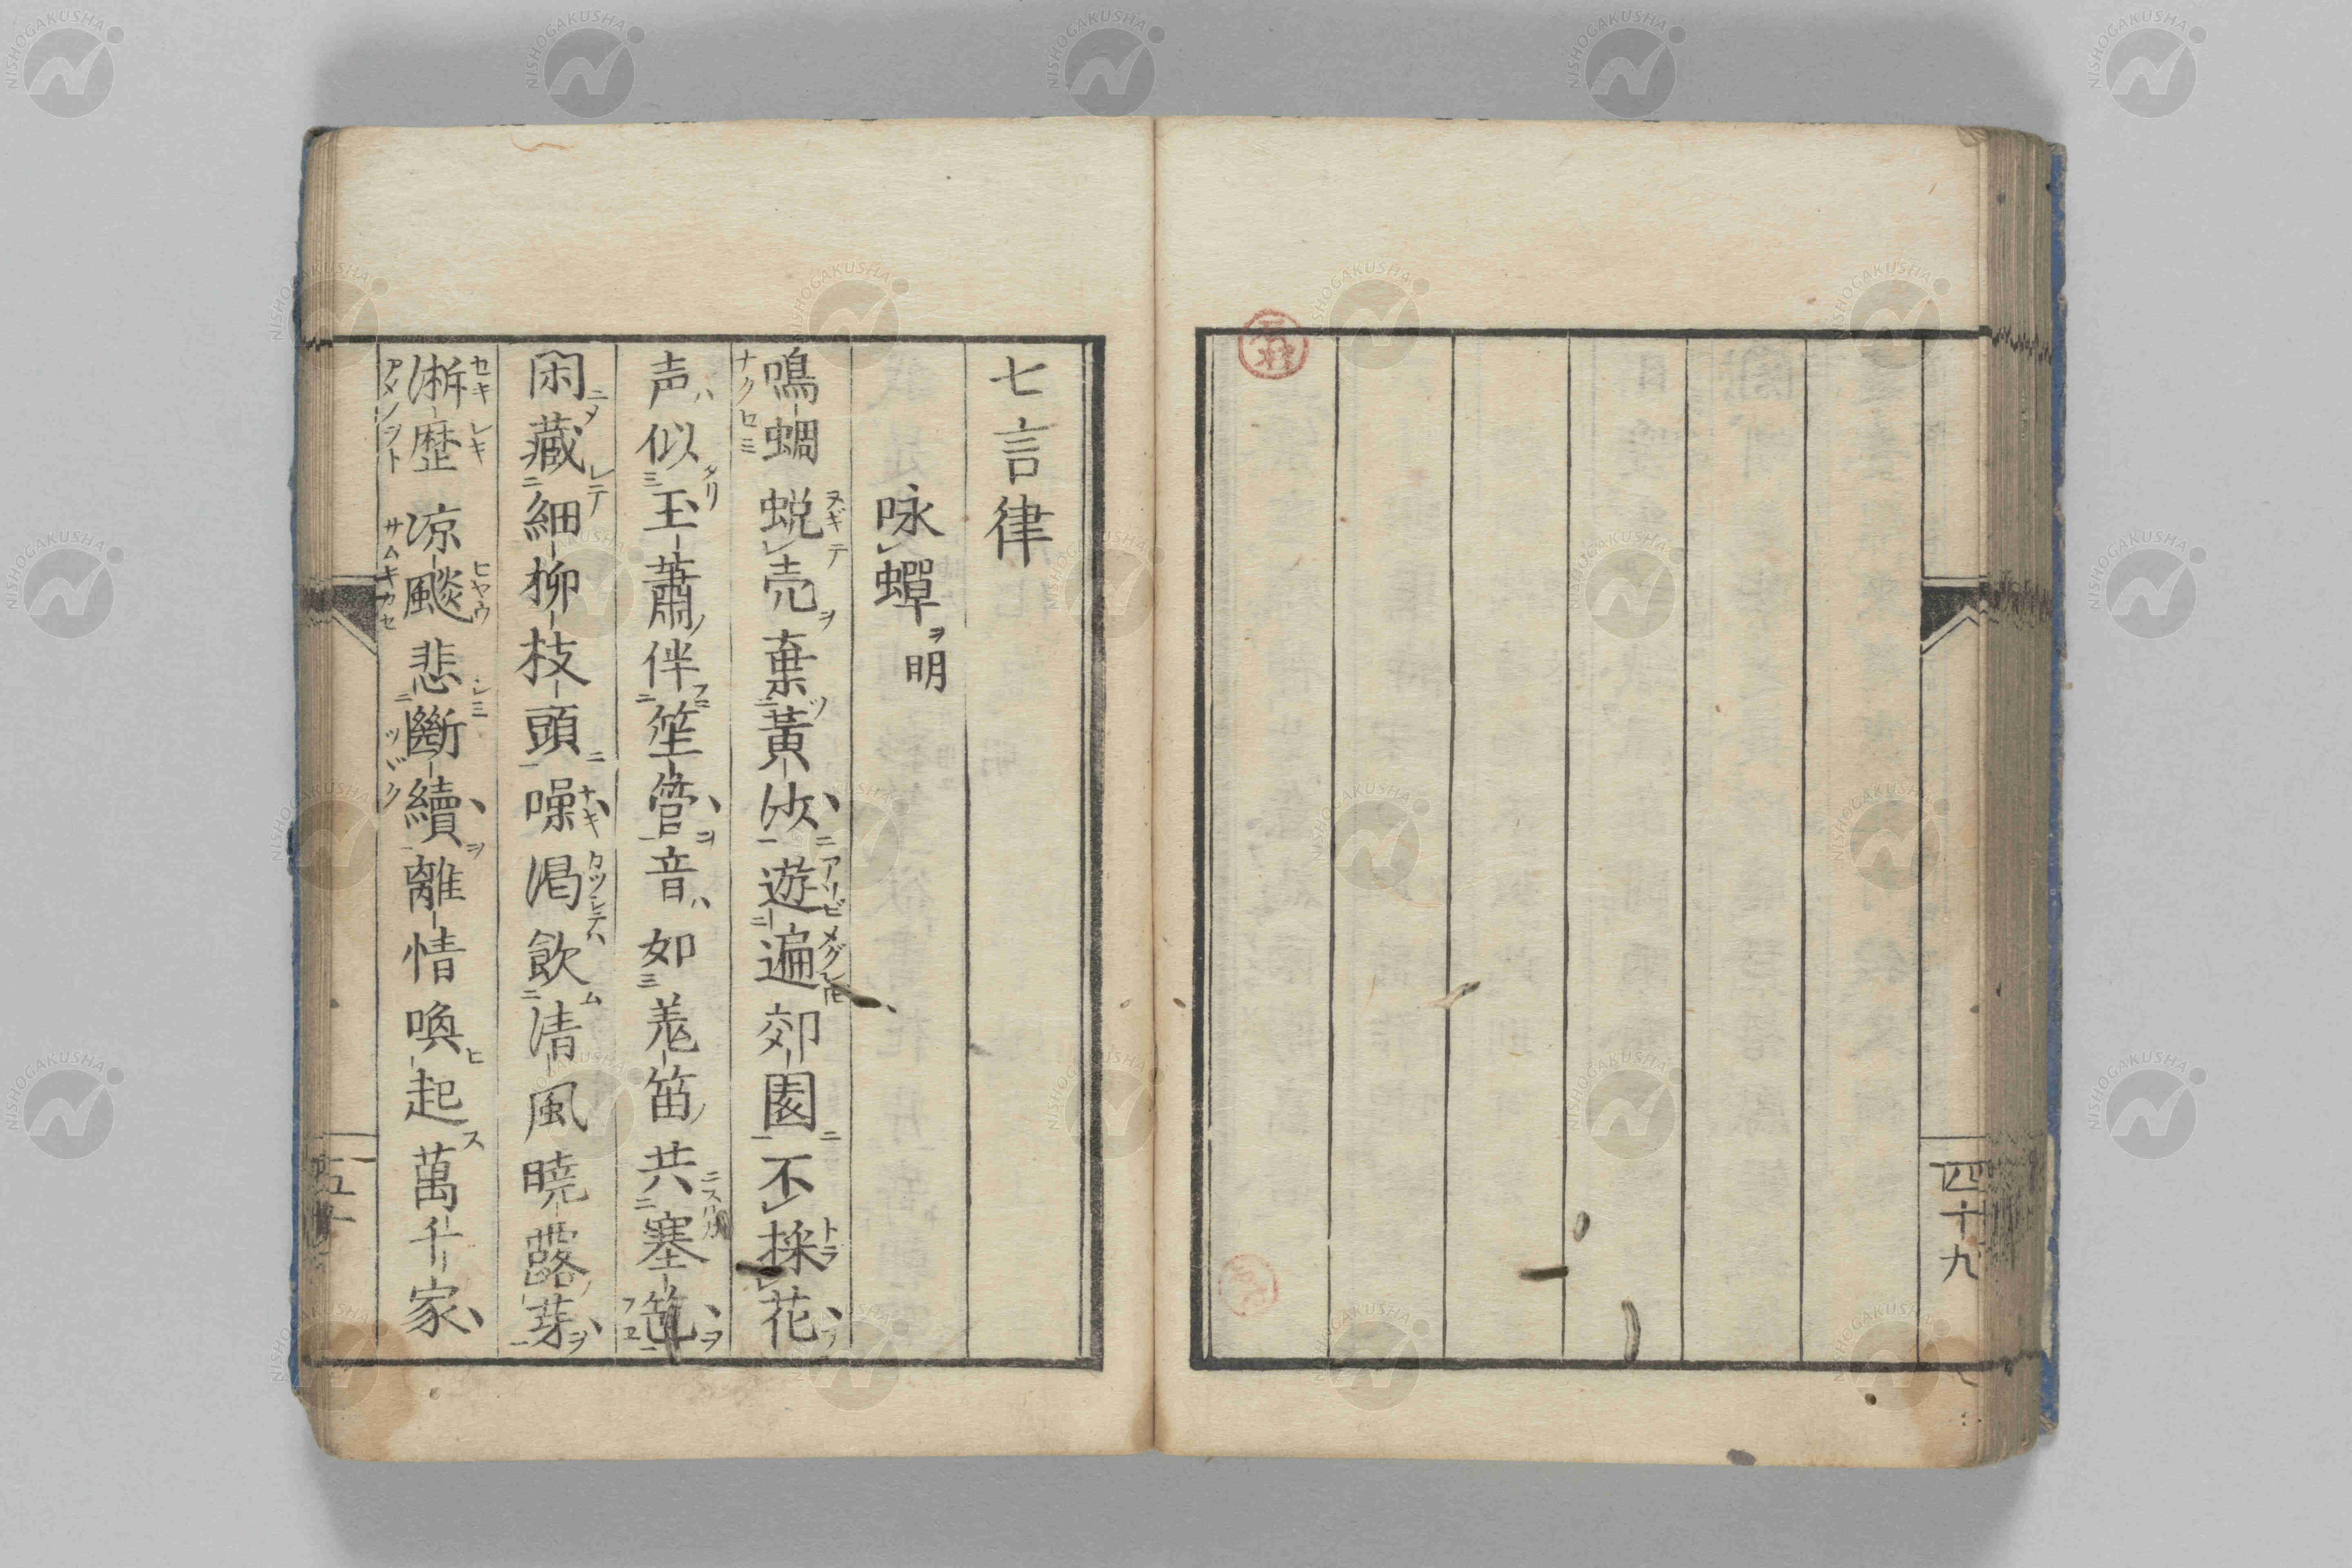 四十九
七言律
咏蟬ヲ 明
鳴蜩蛻売棄黃沙遊遍郊園不採花
声似玉蕭伴笙管音如羗笛共塞笳
閑藏細柳枝頭噪渇飲清風曉露芽
淅歴凉飈悲斷續離情喚起萬千家
五十
NISHOGAKUSHA